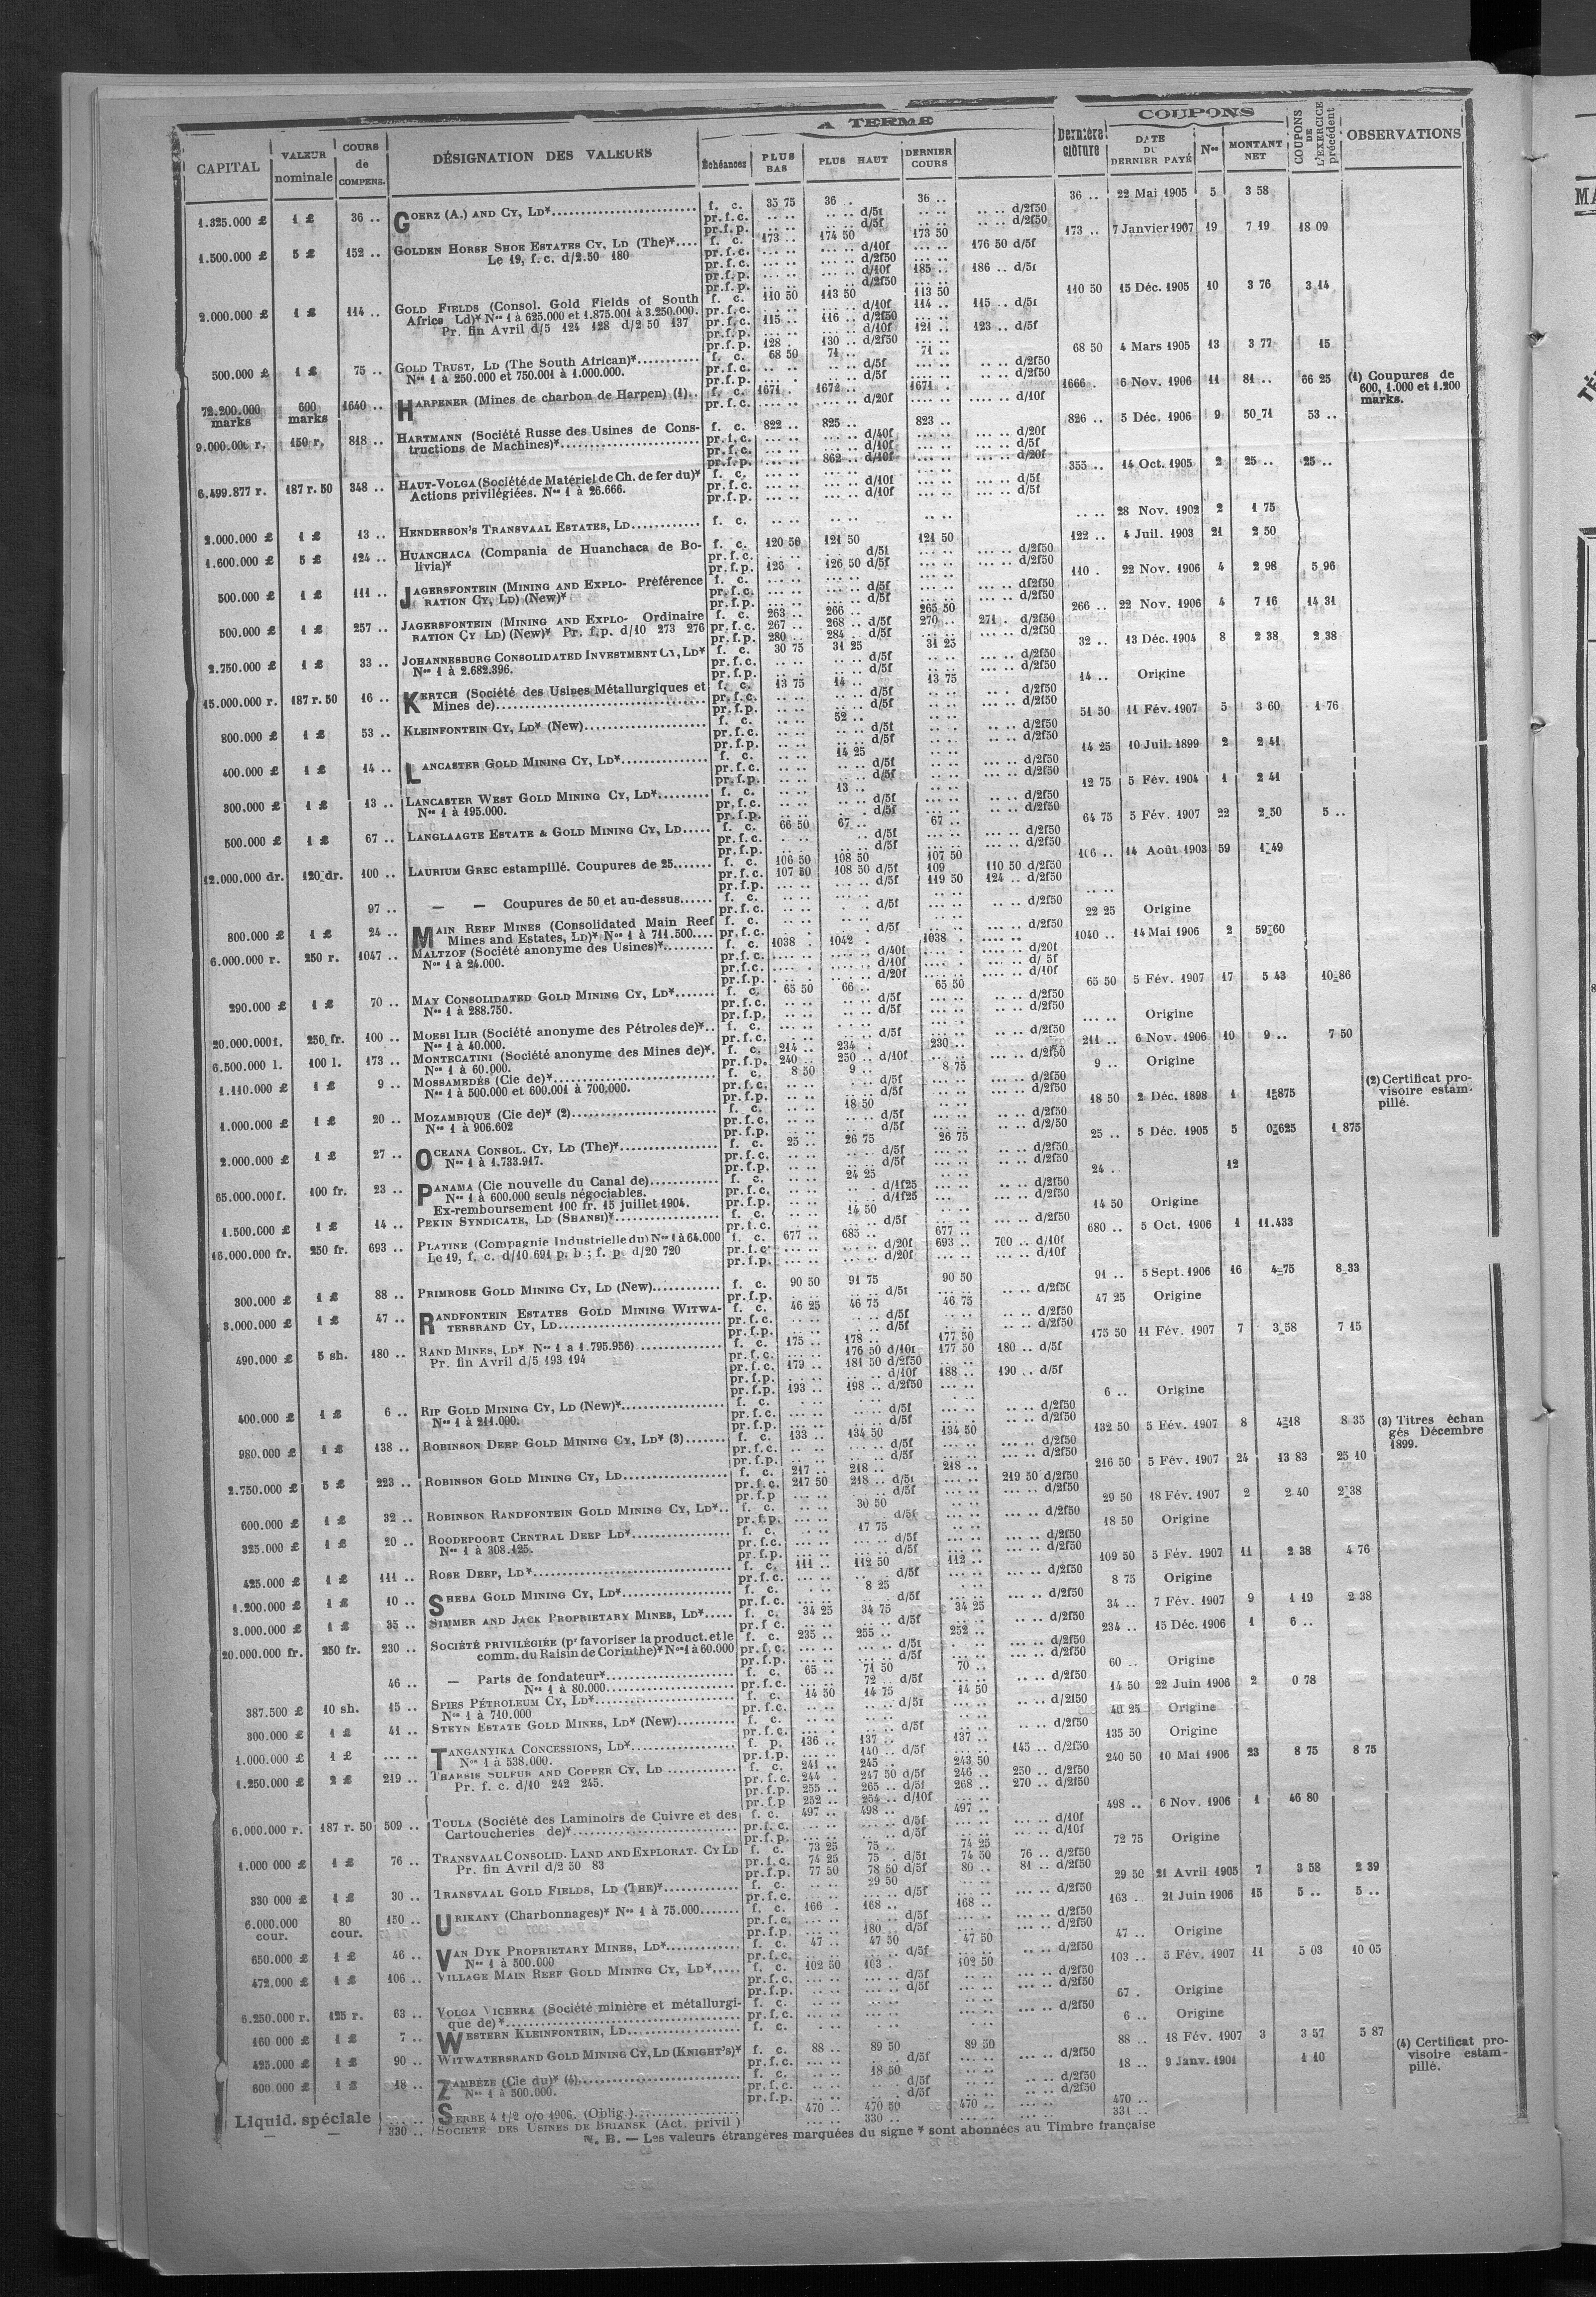 A TERME
COUPONS
CAPITAL | VALEUR nominale | COURS de COMPENS. | DÉSIGNATION DES VALEURS | Échéances | PLUS BAS | PLUS HAUT | DERNIER COURS | Dernière clôture | DATE DU DERNIER PAYÉ | Nos | MONTANT NET | COUPONS DE L'EXERCICE précédent | OBSERVATIONS
1.325.000 £ 1 £ 36 .. GOERZ (A.) AND CY, LD* f. c. 35 75 36 . 36 .. 36 .. 22 Mai 1905 5 3 58
pr. f. c. .. .. .. .. d/5f .. .. .. .. d/2f50
pr. f. p. .. .. .. .. d/5f .. .. .. .. d/2f50
1.500.000 £ 5 £ 152 .. GOLDEN HORSE SHOE ESTATES CY, LD (The)* f. c. 173 .. 174 50 173 50 173 .. 7 Janvier 1907 19 7 19 18 09
Le 19, f. c. d/2.50 180 pr. f. c. d/10f 176 50 d/5f
pr. f. c. d/2f50
pr. f. p. d/10f 185 .. 186 .. d/5f
pr. f. p. d/2f50
2.000.000 £ 1 £ 114 .. GOLD FIELDS (Consol. Gold Fields of South f. c. 110 50 113 50 113 50 110 50 15 Déc. 1905 10 3 76 3 14
Africa Ld)* Nos 1 à 625.000 et 1.875.001 à 3.250.000. pr. f. c. d/10f 114 .. 115 .. d/5f
Pr. fin Avril d/5 124 128 d/2 50 137 pr. f. c. 115 .. 116 .. d/2f50
pr. f. p. d/10f 121 .. 123 .. d/5f
pr. f. p. 128 . 130 .. d/2f50
500.000 £ 1 £ 75 .. GOLD TRUST, LD (The South African)* f. c. 68 50 71 .. 71 .. 68 50 4 Mars 1905 13 3 77 15
Nos 1 à 250.000 et 750.001 à 1.000.000. pr. f. c. d/5f d/2f50
pr. f. p. d/5f d/2f50
72.200.000 marks 600 marks 1640 .. HARPENER (Mines de charbon de Harpen) (1) f. c. 1671 . 1672 .. 1671 . 1666 . 6 Nov. 1906 11 81 .. 66 25 (1) Coupures de 600, 1.000 et 1.200 marks.
pr. f. c. d/20f d/10f
9.000.000 r. 150 r. 818 .. HARTMANN (Société Russe des Usines de Cons- f. c. 822 .. 825 .. 823 .. 826 .. 5 Déc. 1906 9 50 71 53 ..
tructions de Machines)* pr. f. c. d/40f d/20f
pr. f. c. d/10f d/5f
pr. f. p. 862 .. d/10f d/20f
6.499.877 r. 187 r. 50 348 .. HAUT-VOLGA (Société de Matériel de Ch. de fer du)* f. c. 355 .. 14 Oct. 1905 2 25 .. 25 ..
Actions privilégiées. Nos 1 à 26.666. pr. f. c. d/10f d/5f
pr. f. p. d/10f d/5f
2.000.000 £ 1 £ 13 .. HENDERSON'S TRANSVAAL ESTATES, LD f. c. .. .. .. .. .. .. .. .. 28 Nov. 1902 2 1 75
1.600.000 £ 5 £ 124 .. HUANCHACA (Compania de Huanchaca de Bo- f. c. 120 50 121 50 121 50 122 .. 4 Juil. 1903 21 2 50
livia)* pr. f. c. d/5f d/2f50
pr. f. p. 125 . 126 50 d/5f d/2f50
500.000 £ 1 £ 111 .. JAGERSFONTEIN (MINING AND EXPLO- Préférence f. c. 110 . 22 Nov. 1906 4 2 98 5 96
RATION CY, LD) (New)* pr. f. c. d/5f d/2f50
pr. f. p. d/5f d/2f50
500.000 £ 1 £ 257 .. JAGERSFONTEIN (MINING AND EXPLO- Ordinaire f. c. 263 .. 266 .. 265 50 266 .. 22 Nov. 1906 4 7 16 14 31
RATION CY LD) (New)* Pr. f. p. d/10 273 276 pr. f. c. 267 .. 268 .. d/5f 270 .. 271 . d/2f50
pr. f. p. 280 .. 284 .. d/5f d/2f50
2.750.000 £ 1 £ 33 .. JOHANNESBURG CONSOLIDATED INVESTMENT CY, LD* f. c. 30 75 31 25 31 25 32 .. 13 Déc. 1904 8 2 38 2 38
Nos 1 à 2.682.396. pr. f. c. d/5f d/2f50
pr. f. p. d/5f d/2f50
15.000.000 r. 187 r. 50 16 .. KERTCH (Société des Usines Métallurgiques et f. c. 13 75 14 .. 13 75 14 .. Origine
Mines de) pr. f. c. d/5f d/2f50
pr. f. p. d/5f d/2f50
800.000 £ 1 £ 53 .. KLEINFONTEIN CY, LD* (New) f. c. 52 .. 51 50 11 Fév. 1907 5 3 60 1 76
pr. f. c. d/5f d/2f50
pr. f. p. d/5f d/2f50
400.000 £ 1 £ 14 .. LANCASTER GOLD MINING CY, LD* f. c. 14 25 14 25 10 Juil. 1899 2 2 41
pr. f. c. d/5f d/2f50
pr. f. p. d/5f d/2f50
300.000 £ 1 £ 13 .. LANCASTER WEST GOLD MINING CY, LD* f. c. 13 .. 12 75 5 Fév. 1904 1 2 41
Nos 1 à 195.000. pr. f. c. d/5f d/2f50
pr. f. p. d/5f d/2f50
500.000 £ 1 £ 67 .. LANGLAAGTE ESTATE & GOLD MINING CY, LD f. c. 66 50 67 .. 67 .. 64 75 5 Fév. 1907 22 2 50 5 ..
pr. f. c. d/5f d/2f50
pr. f. p. d/5f d/2f50
12.000.000 dr. 120 dr. 100 .. LAURIUM GREC estampillé. Coupures de 25 f. c. 106 50 108 50 107 50 106 .. 14 Août 1903 59 1 49
pr. f. c. 107 50 108 50 d/5f 109 110 50 d/2f50
pr. f. p. d/5f 119 50 124 .. d/2f50
97 .. — — Coupures de 50 et au-dessus f. c. .. ..
pr. f. c. d/5f d/2f50
800.000 £ 1 £ 24 .. MAIN REEF MINES (Consolidated Main Reef f. c. 22 25 Origine
Mines and Estates, LD)* Nos 1 à 711.500 pr. f. c. d/5f d/2f50
6.000.000 r. 250 r. 1047 .. MALTZOF (Société anonyme des Usines)* f. c. 1038 . 1042 . 1038 . 1040 .. 14 Mai 1906 2 59 60
Nos 1 à 24.000. pr. f. c. d/40f d/20f
pr. f. c. d/10f d/ 5f
pr. f. p. d/20f d/10f
290.000 £ 1 £ 70 .. MAY CONSOLIDATED GOLD MINING CY, LD* f. c. 65 50 66 .. 65 50 65 50 5 Fév. 1907 17 5 43 10 86
Nos 1 à 288.750. pr. f. c. d/5f d/2f50
pr. f. p. d/5f d/2f50
20.000.000 f. 250 fr. 100 .. MOESI ILIR (Société anonyme des Pétroles de)* f. c. .. .. Origine
Nos 1 à 40.000. pr. f. c. d/5f d/2f50
6.500.000 l. 100 l. 173 .. MONTECATINI (Société anonyme des Mines de)* f. c. 214 .. 234 . 230 .. 211 .. 6 Nov. 1906 10 9 .. 7 50
Nos 1 à 60.000. pr. f. p. 240 .. 250 .. d/10f d/2f50
1.110.000 £ 1 £ 9 .. MOSSAMEDÈS (Cie de)* f. c. 8 50 9 .. 8 75 9 .. Origine
Nos 1 à 500.000 et 600.001 à 700.000. pr. f. c. d/5f d/2f50
pr. f. p. d/5f d/2f50
1.000.000 £ 1 £ 20 .. MOZAMBIQUE (Cie de)* (2) f. c. 18 50 18 50 2 Déc. 1898 1 1 875 (2) Certificat pro- visoire estam- pillé.
Nos 1 à 906.602 pr. f. c. d/5f d/2f50
pr. f. p. d/5f d/2/50
2.000.000 £ 1 £ 27 .. OCEANA CONSOL. CY, LD (The)* f. c. 25 .. 26 75 26 75 25 .. 5 Déc. 1905 5 0 625 1 875
Nos 1 à 1.733.917. pr. f. c. d/5f d/2f50
pr. f. p. d/5f d/2f50
65.000.000 f. 100 fr. 23 .. PANAMA (Cie nouvelle du Canal de) f. c. 24 25 24 .. 12
Nos 1 à 600.000 seuls négociables. pr. f. c. d/1f25 d/2f50
Ex-remboursement 100 fr. 15 juillet 1904. pr. f. p. d/1f25 d/2f50
1.500.000 £ 1 £ 14 .. PEKIN SYNDICATE, LD (SHANSI)* f. c. 14 50 14 50 Origine
pr. f. c. d/5f d/2f50
16.000.000 fr. 250 fr. 693 .. PLATINE (Compagnie Industrielle du) Nos 1 à 64.000 f. c. 677 .. 685 .. 677 .. 680 .. 5 Oct. 1906 1 11.433
Le 19, f. c. d/10 691 p. b ; f. p. d/20 720 pr. f. c. d/20f 693 .. 700 .. d/10f
pr. f. p. d/20f d/10f
300.000 £ 1 £ 88 .. PRIMROSE GOLD MINING CY, LD (New) f. c. 90 50 91 75 90 50 91 .. 5 Sept. 1906 16 4 75 8 33
pr. f. p. d/5f d/2f50
3.000.000 £ 1 £ 47 .. RANDFONTEIN ESTATES GOLD MINING WITWA- f. c. 46 25 46 75 46 75 47 25 Origine
TERSRAND CY, LD pr. f. c. d/5f d/2f50
pr. f. p. d/5f d/2f50
490.000 £ 5 sh. 180 .. RAND MINES, LD* Nos 1 à 1.795.956) f. c. 175 .. 178 .. 177 50 175 50 11 Fév. 1907 7 3 58 7 15
Pr. fin Avril d/5 193 194 pr. f. c. 176 50 d/10f 177 50 180 .. d/5f
pr. f. c. 179 .. 181 50 d/2f50
pr. f. p. d/10f 188 .. 190 .. d/5f
pr. f. p. 193 .. 198 .. d/2f50
400.000 £ 1 £ 6 .. RIP GOLD MINING CY, LD (New)* f. c. 6 .. Origine
Nos 1 à 211.000. pr. f. c. d/5f d/2f50
pr. f. p. d/5f d/2f50
980.000 £ 1 £ 138 .. ROBINSON DEEP GOLD MINING CY, LD* (3) f. c. 133 .. 134 50 134 50 132 50 5 Fév. 1907 8 4 18 8 35 (3) Titres échan gés Décembre 1899.
pr. f. c. d/5f d/2f50
pr. f. p. d/5f d/2f50
2.750.000 £ 5 £ 223 .. ROBINSON GOLD MINING CY, LD f. c. 217 .. 218 .. 218 .. 216 50 5 Fév. 1907 24 13 83 25 10
pr. f. c. 217 50 218 .. d/5f 219 50 d/2f50
pr. f. p d/5f d/2f50
600.000 £ 1 £ 32 .. ROBINSON RANDFONTEIN GOLD MINING CY, LD* f. c. 30 50 29 50 18 Fév. 1907 2 2 40 2 38
pr. f. p. d/5f d/2f50
325.000 £ 1 £ 20 .. ROODEPOORT CENTRAL DEEP LD* f. c. 17 75 18 50 Origine
Nos 1 à 308.125. pr. f. c. d/5f d/2f50
pr. f. p. d/5f d/2f50
425.000 £ 1 £ 111 .. ROSE DEEP, LD* f. c. 111 .. 112 50 112 .. 109 50 5 Fév. 1907 11 2 38 4 76
pr. f. c. d/5f d/2f50
1.200.000 £ 1 £ 10 .. SHEBA GOLD MINING CY, LD* f. c. 8 25 8 75 Origine
pr. f. c. d/5f d/2f50
3.000.000 £ 1 £ 35 .. SIMMER AND JACK PROPRIETARY MINES, LD* f. c. 34 25 34 75 34 25 34 .. 7 Fév. 1907 9 1 19 2 38
pr. f. c. d/5f d/2f50
20.000.000 fr. 250 fr. 230 .. SOCIÉTÉ PRIVILÉGIÉE (pr favoriser la product. et le f. c. 235 .. 255 .. 252 .. 234 .. 15 Déc. 1906 1 6 ..
comm. du Raisin de Corinthe)* Nos 1 à 60.000 pr. f. c. d/5f d/2f50
pr. f. p. d/5f d/2f50
46 .. — Parts de fondateur* f. c. 65 .. 71 50 70 .. 60 .. Origine
Nos 1 à 80.000 pr. f. c. 72 .. d/5f d/2f50
387.500 £ 10 sh. 15 .. SPIES PÉTROLEUM CY, LD* f. c. 14 50 14 75 14 50 14 50 22 Juin 1906 2 0 78
Nos 1 à 710.000 pr. f. c. d/5f d/2f50
300.000 £ 1 £ 41 .. STEYN ESTATE GOLD MINES, LD* (New) f. c. 40 25 Origine
pr. f. c. d/5f d/2f50
1.000.000 £ 1 £ .. .. TANGANYIKA CONCESSIONS, LD* f. p. 136 .. 137 .. 137 .. 135 50 Origine
Nos 1 à 538.000. pr. f. p. 140 .. d/5f 145 .. d/2f50
1.250.000 £ 2 £ 219 .. THARSIS SULFUR AND COPPER CY, LD f. c. 241 .. 245 .. 243 50 240 50 10 Mai 1906 23 8 75 8 75
Pr. f. c. d/10 242 245. pr. f. c. 244 . 247 50 d/5f 246 .. 250 .. d/2f50
pr. f. p. 255 .. 265 .. d/5f 268 .. 270 .. d/2f50
pr. f. p 252 .. 254 .. d/10f
6.000.000 r. 187 r. 50 509 .. TOULA (Société des Laminoirs de Cuivre et des f. c. 497 .. 498 .. 497 .. 498 .. 6 Nov. 1906 1 46 80
Cartoucheries de)* pr. f. c. d/5f d/10f
pr. f. p. d/5f d/10f
1.000 000 £ 1 £ 76 .. TRANSVAAL CONSOLID. LAND AND EXPLORAT. CY LD f. c. 73 25 75 .. 74 25 72 75 Origine
Pr. fin Avril d/2 50 83 pr. f. c. 74 25 75 . d/5f 74 50 76 .. d/2f50
pr. f. p. 77 50 78 50 d/5f 80 .. 81 .. d/2f50
330 000 £ 1 £ 30 .. TRANSVAAL GOLD FIELDS, LD (THE)* f. c. 29 50 29 50 21 Avril 1905 7 3 58 2 39
pr. f. c. d/5f d/2f50
6.000.000 cour. 80 cour. 150 .. URIKANY (Charbonnages)* Nos 1 à 75.000 f. c. 166 . 168 .. 168 .. 163 .. 21 Juin 1906 15 5 .. 5 ..
pr. f. c. d/5f d/2f50
pr. f. p. 180 .. d/5f d/2f50
650.000 £ 1 £ 46 .. VAN DYK PROPRIETARY MINES, LD* f. c. 47 .. 47 50 47 50 47 .. Origine
Nos 1 à 500.000 pr. f. c. d/5f d/2f50
472.000 £ 1 £ 106 .. VILLAGE MAIN REEF GOLD MINING CY, LD* f. c. 102 50 103 . 102 50 103 .. 5 Fév. 1907 11 5 03 10 05
pr. f. c. d/5f d/2f50
pr. f. p. d/5f d/2f50
6.250.000 r. 125 r. 63 .. VOLGA VICHERA (Société minière et métallurgi- f. c. 67 . Origine
que de)* pr. f. c. d/2f50
160 000 £ 1 £ 7 .. WESTERN KLEINFONTEIN, LD f. c. 6 .. Origine
425.000 £ 1 £ 90 .. WITWATERSRAND GOLD MINING CY, LD (KNIGHT'S)* f. c. 88 .. 89 50 89 50 88 .. 18 Fév. 1907 3 3 57 5 87
pr. f. c. d/5f d/2f50
600.000 £ 1 £ 18 .. ZAMBÈZE (Cie du)* (4) f. c. 18 50 18 .. 9 Janv. 1901 1 10 (4) Certificat pro- visoire estam- pillé.
Nos 1 à 500.000. pr. f. c. d/5f d/2f50
pr. f. p. d/5f d/2f50
Liquid. spéciale .. .. SERBE 4 1/2 o/o 1906. (Oblig.) 470 .. 470 50 470 .. 470 ..
330 .. SOCIÉTÉ DES USINES DE BRIANSK (Act. privil ) 330 .. 331 ..
N. B. — Les valeurs étrangères marquées du signe * sont abonnées au Timbre française
MA